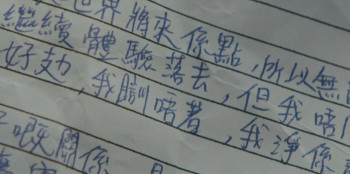 世界將來係點,所以無
繼續體驗落去,但我唔
好攰,我瞓唔着,我淨係
嘅關係